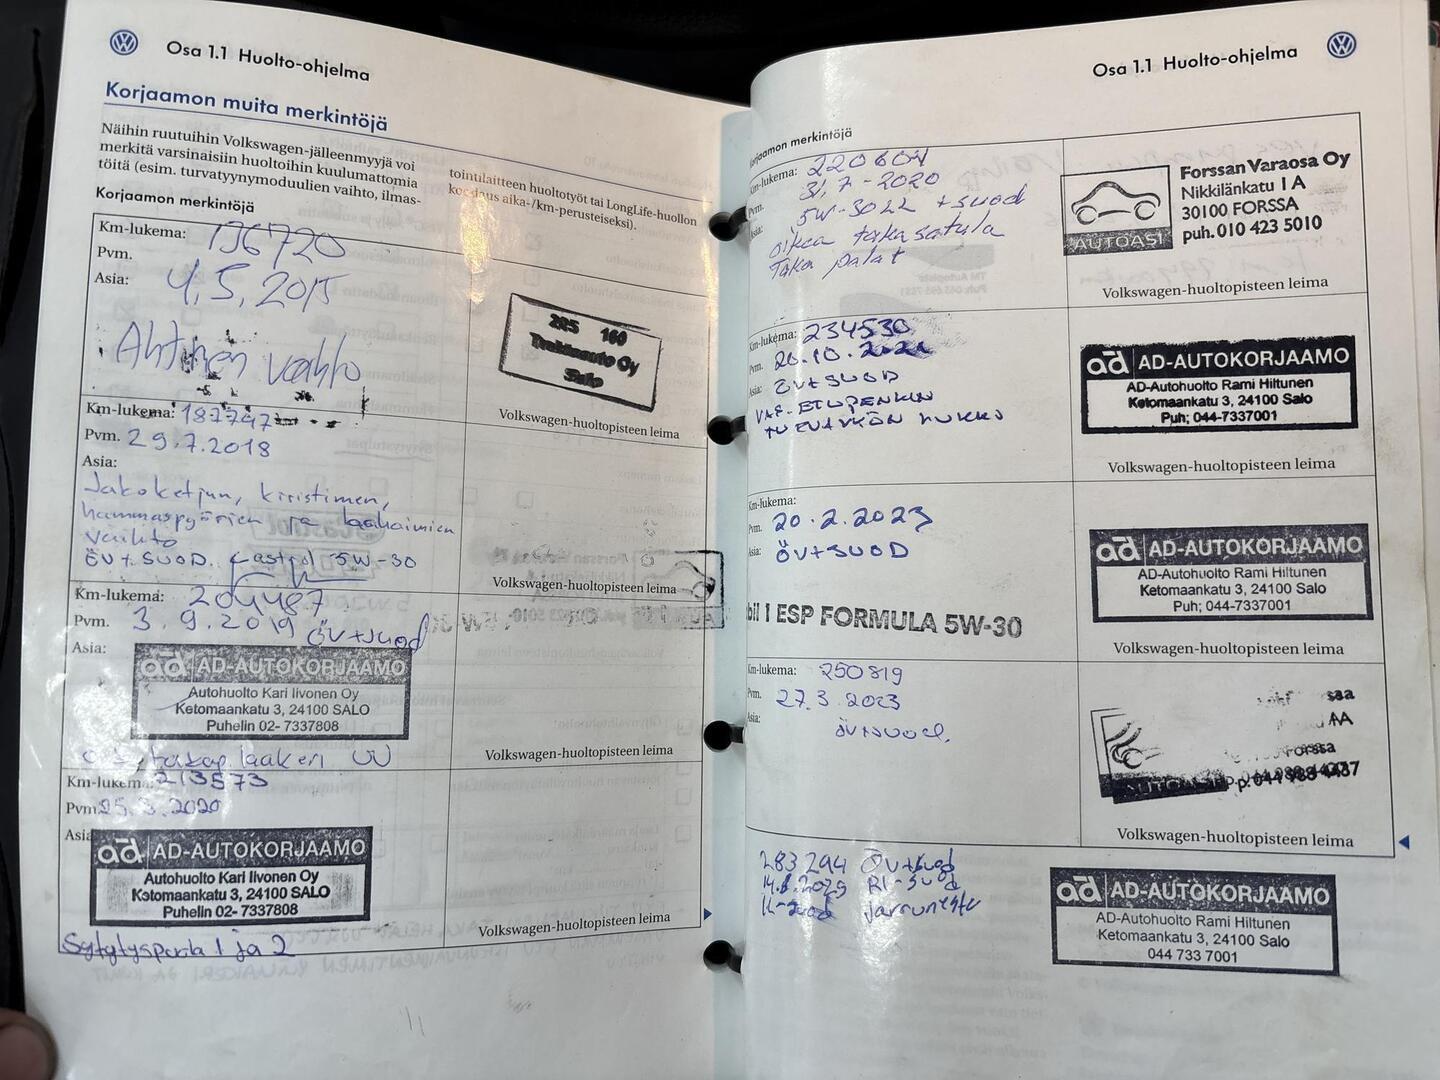 Osa 1.1 Huolto-ohjelma
Korjaamon muita merkintöjä
Näihin ruutuihin Volkswagen-jälleenmyyjä voi
merkitä varsinaisiin huoltoihin kuulumattomia
töitä (esim. turvatyynymoduulien vaihto, ilmas-
tointulaitteen huoltotyöt tai LongLife-huollon
koodaus aika-/km-perusteiseksi).
Korjaamon merkintöjä
Km-lukema: 136720
Pvm.
Asia: 4.5.2015
vaihto
205 160
Salo
Volkswagen-huoltopisteen leima
Km-lukema: 187747
Pvm. 29.7.2018
Asia:
Jakoketjun, kiristimen,
hammaspyörien ja laahaimien
vaihto
ÖV+SUOD. Castrol 5W-30
Volkswagen-huoltopisteen leima
Km-lukema: 204487
Pvm. 3.9.2019 ÖV+suod
Asia:
ad AD-AUTOKORJAAMO
Autohuolto Kari Iivonen Oy
Ketomaankatu 3, 24100 SALO
Puhelin 02- 7337808
laakeri UU
Volkswagen-huoltopisteen leima
Km-lukema: 213573
Pvm. 25.3.2020
Asia:
ad AD-AUTOKORJAAMO
Autohuolto Kari Iivonen Oy
Ketomaankatu 3, 24100 SALO
Puhelin 02- 7337808
Volkswagen-huoltopisteen leima
Sytytyspuola 1 ja 2
Osa 1.1 Huolto-ohjelma
Korjaamon merkintöjä
Km-lukema: 220604
Pvm. 31.7-2020
Asia: 5W-30LL + suod
oikea takasatula
Taka palat
AUTOASI
Forssan Varaosa Oy
Nikkilänkatu 1 A
30100 FORSSA
puh. 010 423 5010
Volkswagen-huoltopisteen leima
Km-lukema: 234530
Pvm. 20.10.
Asia: ÖV+SUOD
VAS. ETUPENKIN
TURVAVYÖN LUKKO
ad AD-AUTOKORJAAMO
AD-Autohuolto Rami Hiltunen
Ketomaankatu 3, 24100 Salo
Puh; 044-7337001
Volkswagen-huoltopisteen leima
Km-lukema:
Pvm. 20.2.2023
Asia: ÖV+SUOD
bil 1 ESP FORMULA 5W-30
ad AD-AUTOKORJAAMO
AD-Autohuolto Rami Hiltunen
Ketomaankatu 3, 24100 Salo
Puh; 044-7337001
Volkswagen-huoltopisteen leima
Km-lukema: 250819
Pvm. 27.3.2023
Asia:
öv+suod.
Forssa
Volkswagen-huoltopisteen leima
283294 ÖV+suod
RI-suod
Jarruneste
ad AD-AUTOKORJAAMO
AD-Autohuolto Rami Hiltunen
Ketomaankatu 3, 24100 Salo
044 733 7001